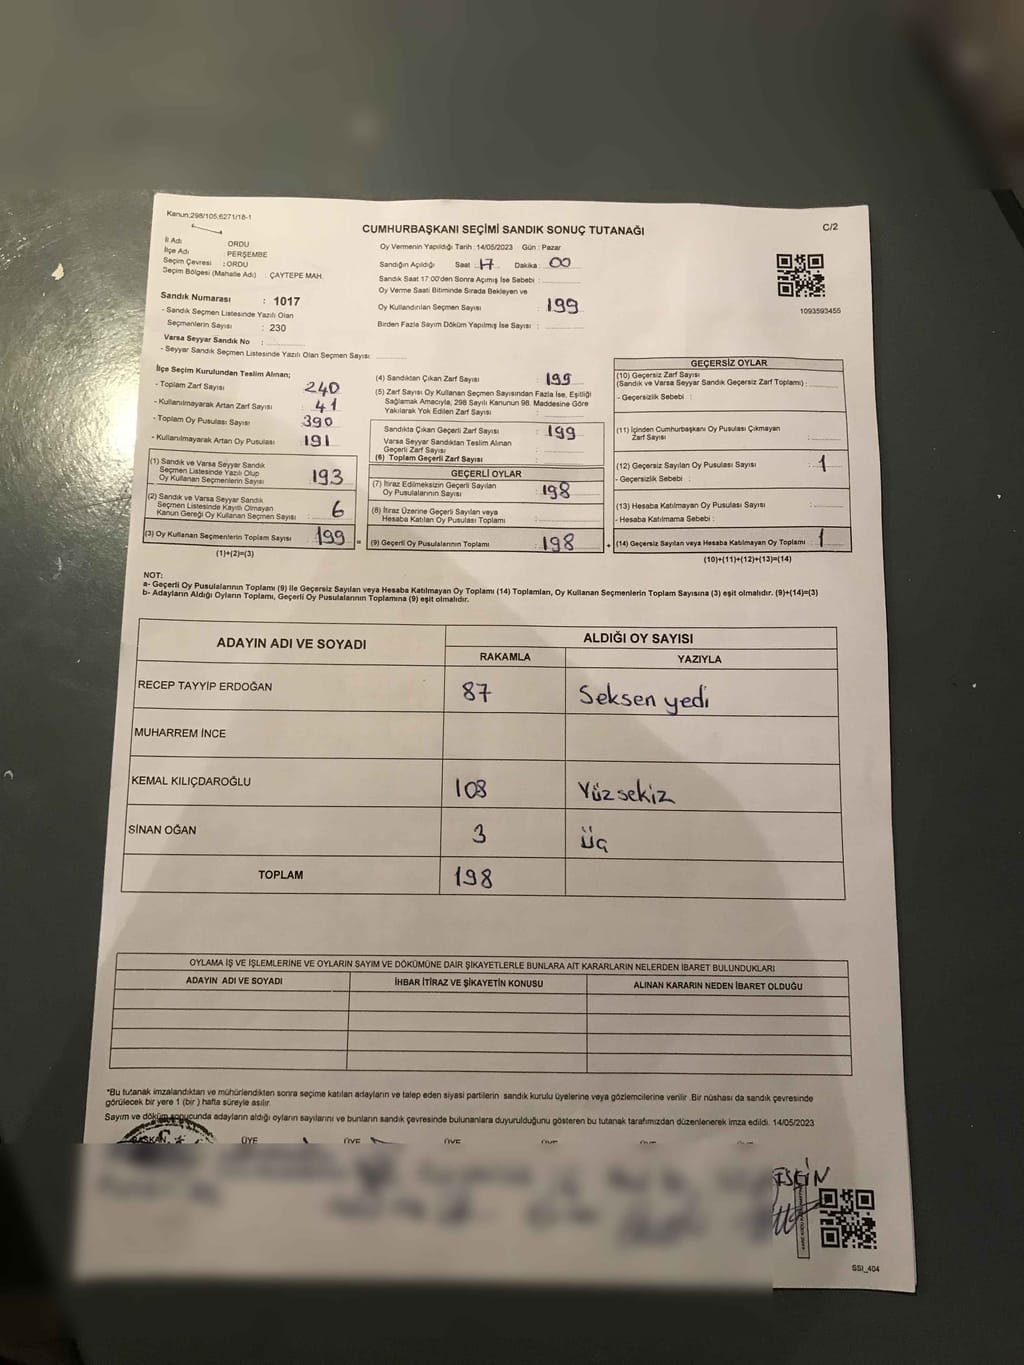 Kanun;298/105,6271/18-1
C/2
CUMHURBAŞKANI SEÇİMİ SANDIK SONUÇ TUTANAĞI
İl Adı : ORDU
İlçe Adı : PERŞEMBE
Seçim Çevresi : ORDU
Seçim Bölgesi (Mahalle Adı) : ÇAYTEPE MAH.
Sandık Numarası : 1017
- Sandık Seçmen Listesinde Yazılı Olan
Seçmenlerin Sayısı : 230
Varsa Seyyar Sandık No :
- Seyyar Sandık Seçmen Listesinde Yazılı Olan Seçmen Sayısı:
Oy Vermenin Yapıldığı Tarih :14/05/2023 Gün : Pazar
Sandığın Açıldığı Saat : 17 Dakika : 00
Sandık Saat 17:00'den Sonra Açımış İse Sebebi :
Oy Verme Saati Bitiminde Sırada Bekleyen ve
Oy Kullandırılan Seçmen Sayısı : 199
Birden Fazla Sayım Döküm Yapılmış İse Sayısı :
1093593455
İlçe Seçim Kurulundan Teslim Alınan;
- Toplam Zarf Sayısı : 240
- Kullanılmayarak Artan Zarf Sayısı : 41
- Toplam Oy Pusulası Sayısı : 390
- Kullanılmayarak Artan Oy Pusulası : 191
(1) Sandık ve Varsa Seyyar Sandık
Seçmen Listesinde Yazılı Olup
Oy Kullanan Seçmenlerin Sayısı : 193
(2) Sandık ve Varsa Seyyar Sandık
Seçmen Listesinde Kayıtlı Olmayan
Kanun Gereği Oy Kullanan Seçmen Sayısı : 6
(3) Oy Kullanan Seçmenlerin Toplam Sayısı : 199
(1)+(2)=(3)
(4) Sandıktan Çıkan Zarf Sayısı : 199
(5) Zarf Sayısı Oy Kullanan Seçmen Sayısından Fazla İse, Eşitliği
Sağlamak Amacıyla, 298 Sayılı Kanunun 98. Maddesine Göre
Yakılarak Yok Edilen Zarf Sayısı :
Sandıkta Çıkan Geçerli Zarf Sayısı : 199
Varsa Seyyar Sandıktan Teslim Alınan
Geçerli Zarf Sayısı :
(6) Toplam Geçerli Zarf Sayısı :
GEÇERLİ OYLAR
(7) İtiraz Edilmeksizin Geçerli Sayılan
Oy Pusulalarının Sayısı : 198
(8) İtiraz Üzerine Geçerli Sayılan veya
Hesaba Katılan Oy Pusulası Toplamı :
= (9) Geçerli Oy Pusulalarının Toplamı : 198
GEÇERSİZ OYLAR
(10) Geçersiz Zarf Sayısı
(Sandık ve Varsa Seyyar Sandık Geçersiz Zarf Toplamı) :
- Geçersizlik Sebebi :
(11) İçinden Cumhurbaşkanı Oy Pusulası Çıkmayan
Zarf Sayısı :
(12) Geçersiz Sayılan Oy Pusulası Sayısı : 1
- Geçersizlik Sebebi :
(13) Hesaba Katılmayan Oy Pusulası Sayısı :
- Hesaba Katılmama Sebebi :
+ (14) Geçersiz Sayılan veya Hesaba Katılmayan Oy Toplamı : 1
(10)+(11)+(12)+(13)=(14)
NOT:
a- Geçerli Oy Pusulalarının Toplamı (9) ile Geçersiz Sayılan veya Hesaba Katılmayan Oy Toplamı (14) Toplamları, Oy Kullanan Seçmenlerin Toplam Sayısına (3) eşit olmalıdır. (9)+(14)=(3)
b- Adayların Aldığı Oyların Toplamı, Geçerli Oy Pusulalarının Toplamına (9) eşit olmalıdır.
ADAYIN ADI VE SOYADI
ALDIĞI OY SAYISI
RAKAMLA YAZIYLA
RECEP TAYYİP ERDOĞAN 87 Seksen yedi
MUHARREM İNCE
KEMAL KILIÇDAROĞLU 108 Yüzsekiz
SİNAN OĞAN 3 Üç
TOPLAM 198
OYLAMA İŞ VE İŞLEMLERİNE VE OYLARIN SAYIM VE DÖKÜMÜNE DAİR ŞİKAYETLERLE BUNLARA AİT KARARLARIN NELERDEN İBARET BULUNDUKLARI
ADAYIN ADI VE SOYADI İHBAR İTİRAZ VE ŞİKAYETİN KONUSU ALINAN KARARIN NEDEN İBARET OLDUĞU
*Bu tutanak imzalandıktan ve mühürlendikten sonra seçime katılan adayların ve talep eden siyasi partilerin sandık kurulu üyelerine veya gözlemcilerine verilir .Bir nüshası da sandık çevresinde
görülecek bir yere 1 (bir ) hafta süreyle asılır.
Sayım ve döküm sonucunda adayların aldığı oyların sayılarını ve bunların sandık çevresinde bulunanlara duyurulduğunu gösteren bu tutanak tarafımızdan düzenlenerek imza edildi. 14/05/2023
BAŞKAN ÜYE ÜYE ÜYE
SSI_404